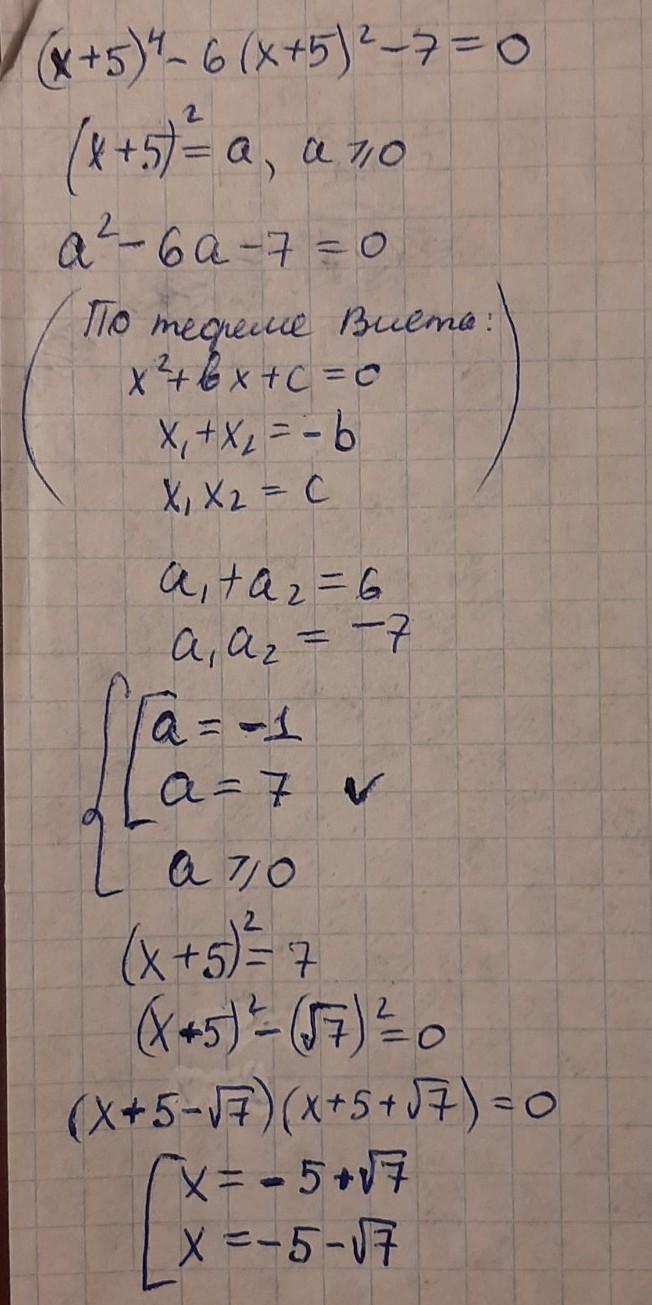 (x+5)⁴ - 6(x+5)² - 7 = 0
(x+5)² = a, a ⩾ 0
a² - 6a - 7 = 0
(По теореме Виета:
x² + bx + c = 0
x₁ + x₂ = -b
x₁ x₂ = c)
a₁ + a₂ = 6
a₁ a₂ = -7
{ [ a = -1
a = 7 ✓
a ⩾ 0
(x+5)² = 7
(x+5)² - (√7)² = 0
(x+5-√7)(x+5+√7) = 0
[ x = -5+√7
x = -5-√7